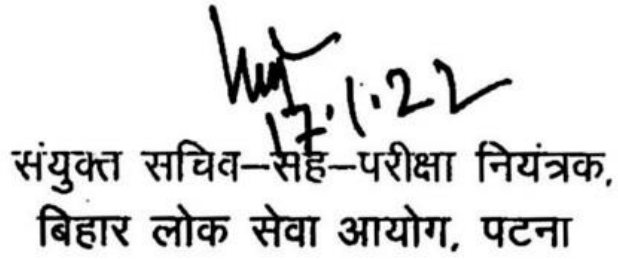 17.1.22
संयुक्त सचिव–सह–परीक्षा नियंत्रक,
बिहार लोक सेवा आयोग, पटना